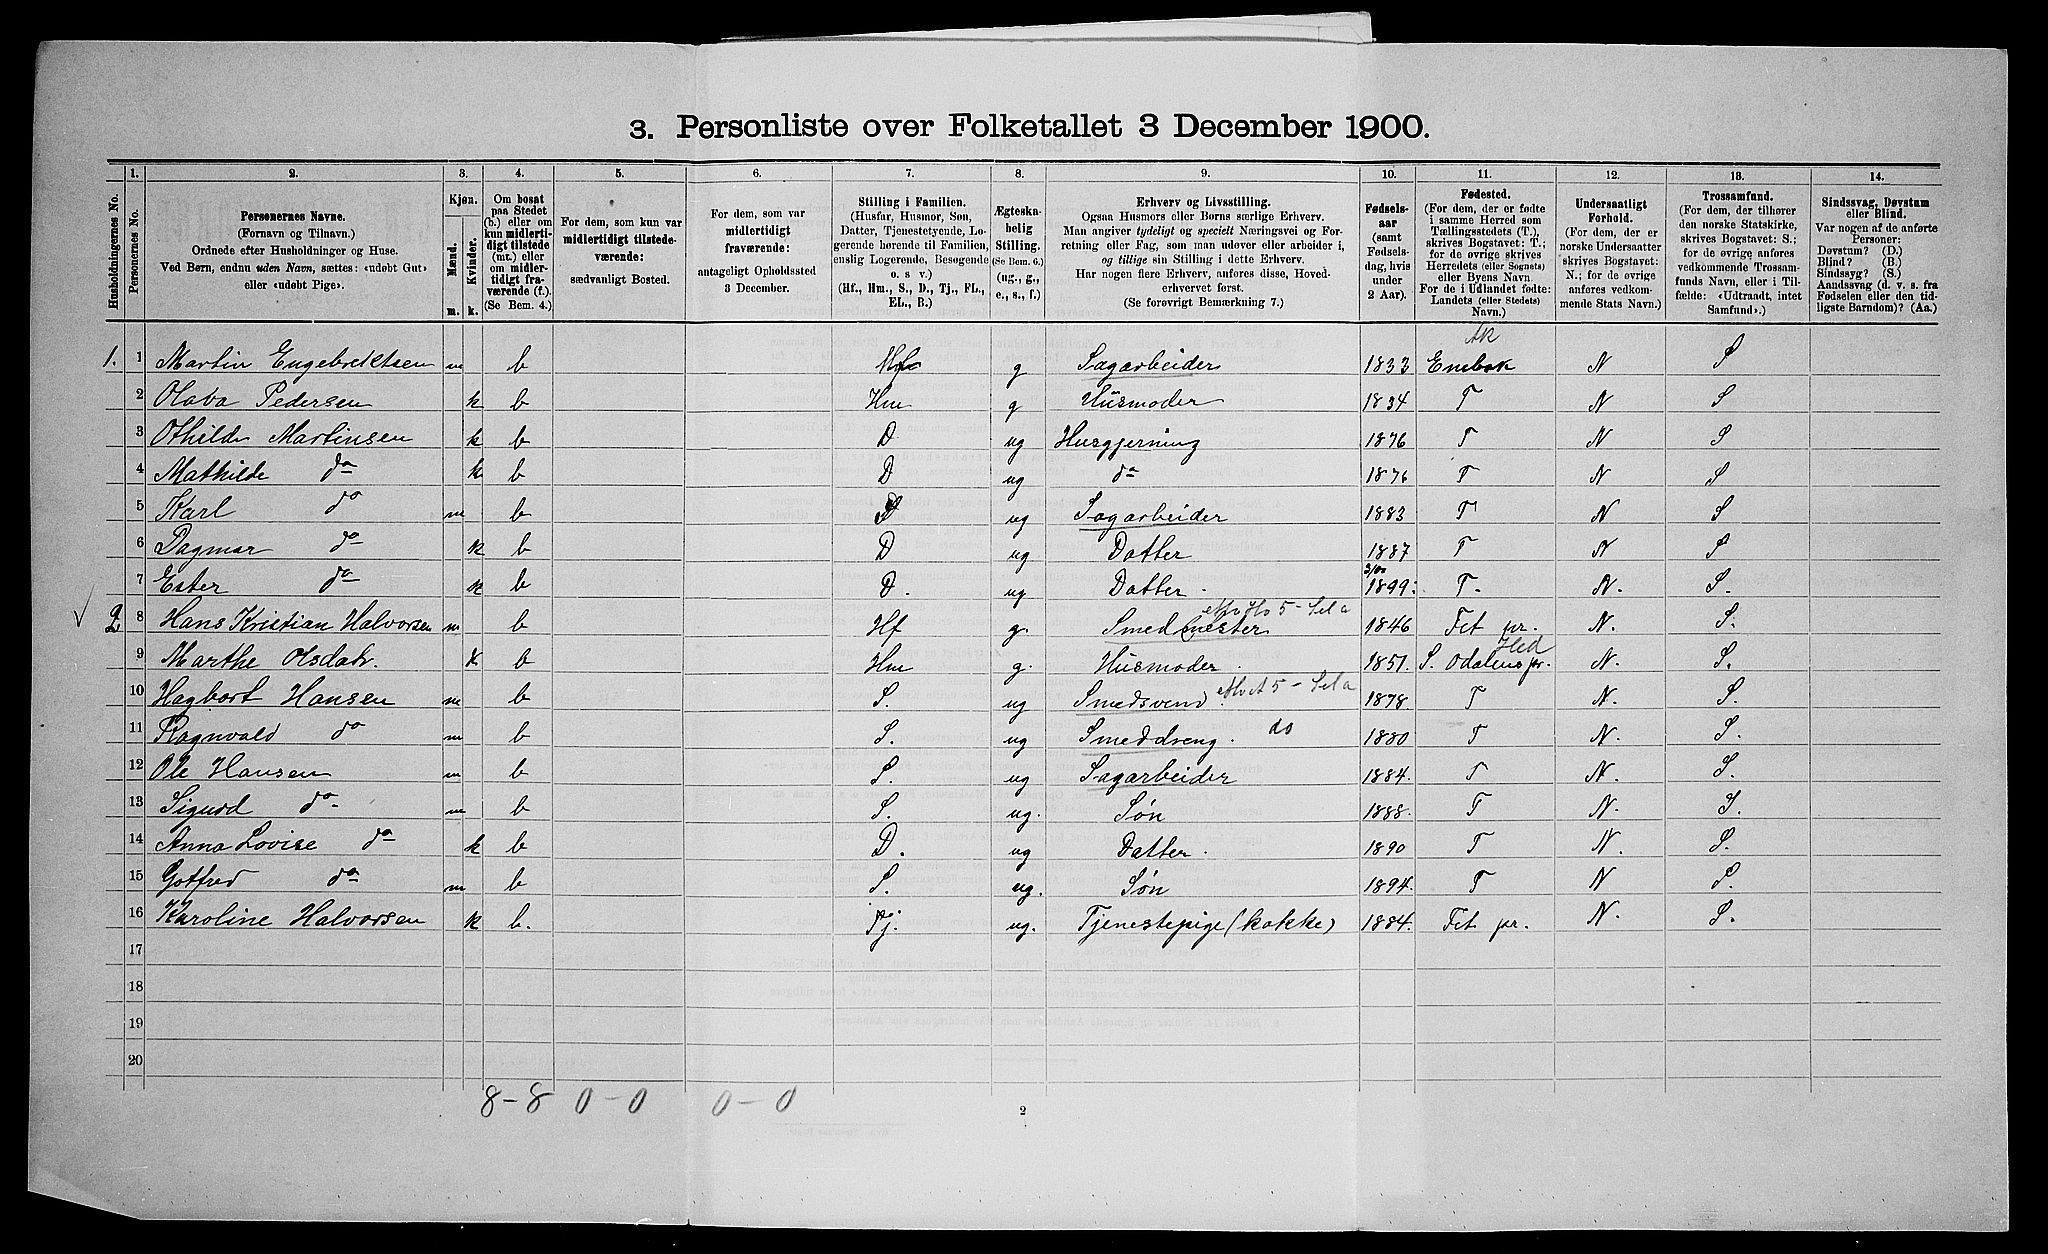 3. Personliste over Folketallet 3 December 1900.
Husholdningernes No.
1. Personernes No.
2. Personernes Navne. (Fornavn og Tilnavn.) Ordnede efter Husholdninger og Huse. Ved Børn, endnu uden Navn, sættes: «udøbt Gut» eller «udøbt Pige».
3. Kjøn. Mænd. m. Kvinder. k.
4. Om bosat paa Stedet (b.) eller om kun midlertidigt tilstede (mt.) eller om midlertidigt fraværende (f.) (Se Bem. 4.)
5. For dem, som kun var midlertidigt tilstedeværende: sædvanligt Bosted.
6. For dem, som var midlertidigt fraværende: antageligt Opholdssted 3 December.
7. Stilling i Familien. (Husfar, Husmor, Søn, Datter, Tjenestetyende, Logerende hørende til Familien, enslig Logerende, Besøgende o. s v.) (Hf., Hm., S., D., Tj., FL., EL., B.)
8. Ægteskabelig Stilling. (Se Bem. 6.) (ug., g., e., s., f.)
9. Erhverv og Livsstilling. Ogsaa Husmors eller Børns særlige Erhverv. Man angiver tydeligt og specielt Næringsvei og Forretning eller Fag, som man udøver eller arbeider i, og tillige sin Stilling i dette Erhverv. Har nogen flere Erhverv, anføres disse, Hovederhvervet først. (Se forøvrigt Bemærkning 7.)
10. Fødselsaar (samt Fødselsdag, hvis under 2 Aar).
11. Fødested. (For dem, der er fødte i samme Herred som Tællingsstedets (T.), skrives Bogstavet: T.; for de øvrige skrives Herredets (eller Sognets) eller Byens Navn. For de i Udlandet fødte: Landets (eller Stedets) Navn.)
12. Undersaatligt Forhold. (For dem, der er norske Undersaatter skrives Bogstavet: N.; for de øvrige anføres vedkommende Stats Navn.)
13. Trossamfund. (For dem, der tilhører den norske Statskirke, skrives Bogstavet: S.; for de øvrige anføres vedkommende Trossamfunds Navn, eller i Tilfælde: «Udtraadt, intet Samfund».)
14. Sindssvag, Døvstum eller Blind. Var nogen af de anførte Personer: Døvstum? (D.) Blind? (B.) Sindssyg? (S.) Aandssvag (d. v. s. fra Fødselen eller den tidligste Barndom)? (Aa.)
Ak
1. 1 Martin Engebrektsen m b Hf g Sagarbeider 1833 Enebak N S
2 Olava Pedersen k b Hm g Husmoder 1834 T N S
3 Othilde Martinsen k b D ug Husgjerning 1876 T N S
4 Mathilde do k b D ug do 1876 T N S
5 Karl do m b ug Sagarbeider 1883 T N S
6 Dagmar do k b D ug Datter 1887 T N S
7 Ester do k b D. ug Datter. 3/10 1899. T. N. S.
2. 8 Hans Kristian Halvorsen m b Hf g. Smedmester 1846 Fet pr. N. S.
9 Marthe Olsdatr. k b Hm g. Husmoder. 1851. S. Odalens pr. Hed N. S.
10 Hagbart Hansen m b S. ug Smedsvend. 1878. T N. S.
11 Ragnvald do m b S. ug Smeddreng. do 1880 T N. S.
12 Ole Hansen m b S. ug Sagarbeider 1884. T N. S.
13 Sigurd do m b S. ug. Søn 1888. T N. S.
14 Anna Lovise do k b D. ug Datter. 1890 T N. S.
15 Gotfred do m b S. ug. Søn 1894. T N S.
16 Karoline Halvorsen k b. Tj. ug. Tjenestepige (kokke) 1884. Fet pr. N. S.
17
18
19
20
8-8 0-0 0-0
2